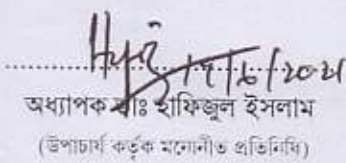 17/6/2021
অধ্যাপক মোঃ হাফিজুল ইসলাম
(উপাচার্য কর্তৃক মনোনীত প্রতিনিধি)